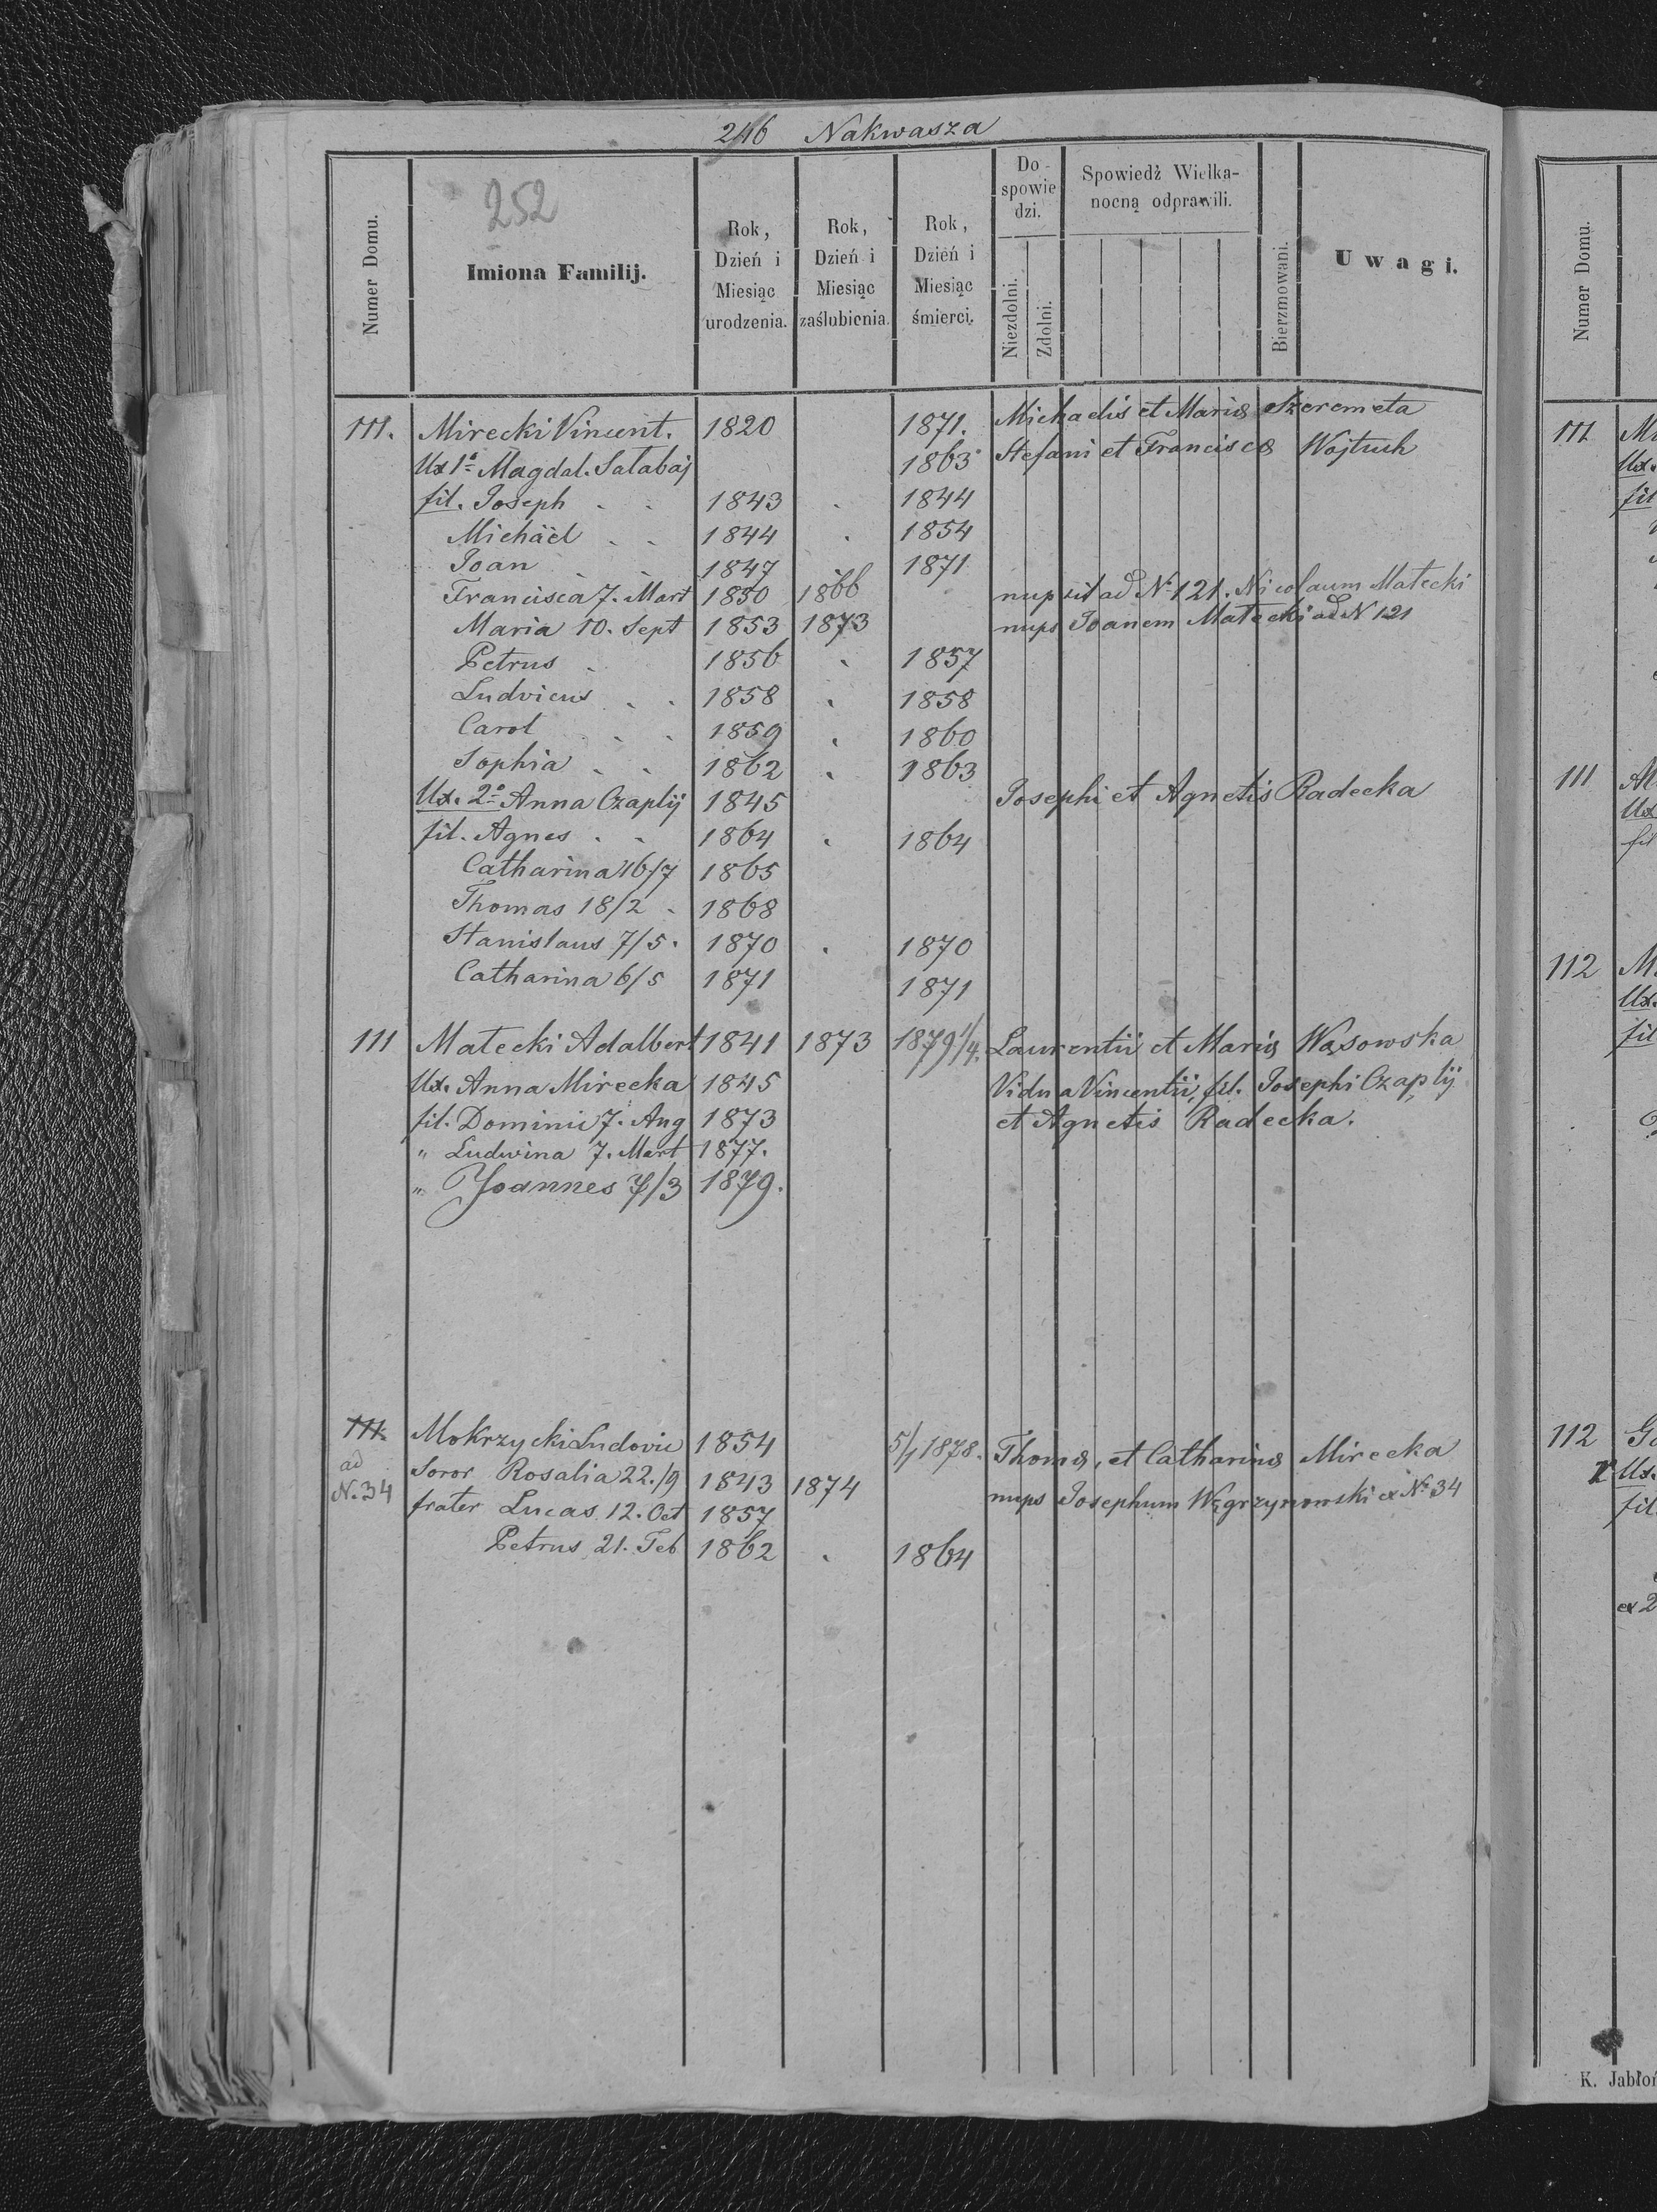 246 Nakwasza
252
Numer Domu.
Imiona Familij.
Rok, Dzień i Miesiąc urodzenia.
Rok, Dzień i Miesiąc zaślubienia.
Rok, Dzień i Miesiąc śmierci.
Do spowie dzi.
Niezdolni.
Zdolni.
Spowiedź Wielka-
nocną odprawili.
Bierzmowani.
Uwagi.
111. Mirecki Vincent. 1820 1871. Michaelis et Mariæ Szeremeta
Ux 1ª Magdal. Sałabaj 1863 Stefani et Franciscæ Wojtuch
fil. Joseph . . 1843 . 1844
Michäel . . 1844 . 1854
Joan . . 1847 1871
Francisca 7. Mart 1850 1866 nupsit ad N. 121. Nicolaum Małecki
Maria 10. Sept 1853 1873 nups Joanem Małecki ad N 121
Petrus . 1856 . 1857
Ludvicus . . 1858 . 1858
Carol . . 1859 . 1860
Sophia . . 1862 . 1863
Ux. 2ª Anna Czaplij 1845 Josephi et Agnetis Radecka
fil. Agnes . . 1864 . 1864
Catharina 16/7 1865
Thomas 18/2 . 1868
Stanislaus 7/5. 1870 . 1870
Catharina 6/5 1871 1871
111 Małecki Adalbert 1841 1873 1879 1/4. Laurentii et Mariæ Wąsowska
Ux. Anna Mirecka 1845 Vidua Vincentii, fil. Josephi Czaplij
fil. Dominic 7. Aug 1873 et Agnetis Radecka.
" Ludwina 7. Mart 1877.
" Joannes 7/3 1879.
111. Mokrzycki Ludovic 1854 5/1 1878. Thomæ, et Catharinæ Mirecka
ad N. 34 Soror Rosalia 22./9 1843 1874 nups Josephum Węgrzynowski ex N. 34
frater Lucas 12. Oct 1857
Petrus 21. Feb 1862 . 1864
Numer Domu.
111
Ux.
fil
111
Ux
fil
112
Ux.
fil
112
Ux.
fil.
ex 2
K. Jabłoń